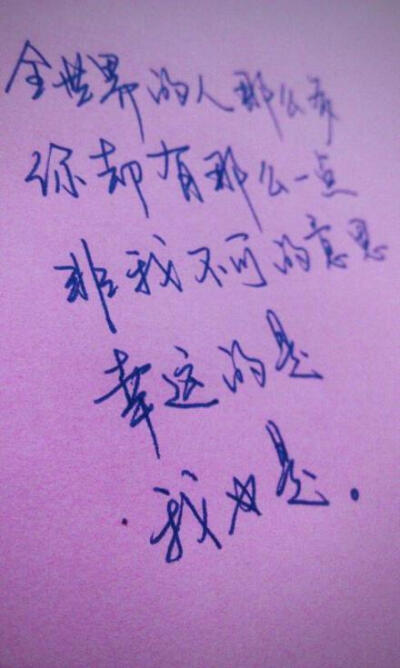 全世界的人那么多
你却有那么一点
非我不可的意思
幸运的是
我也是.